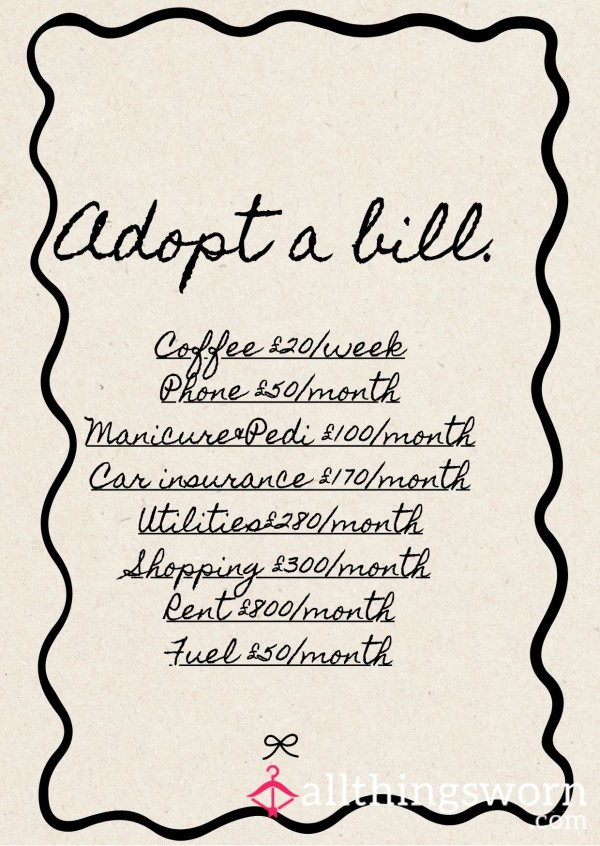 Adopt a bill.
Coffee £20/week
Phone £50/month
Manicure&Pedi £100/month
Car insurance £170/month
Utilities£280/month
Shopping £300/month
Rent £800/month
Fuel £50/month
allthingsworn
.com